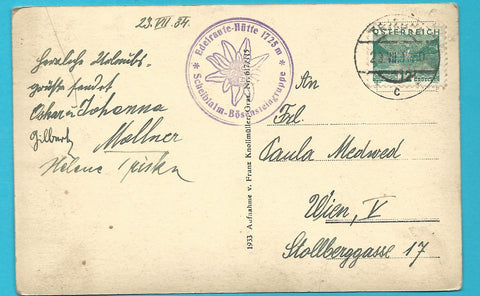 23.VII.34.
Herzliche Urlaubs-
grüße sendet
Oskar u. Johanna
Mollner
Helene
* Edelraute-Hütte 1725 m *
Scheiblalm-Bösensteingruppe
1933 Aufnahme v. Franz Knollmüller, Graz Nr.
ÖSTERREICH
c
An
Frl
Paula Medwed
Wien, V
Stollberggasse 17